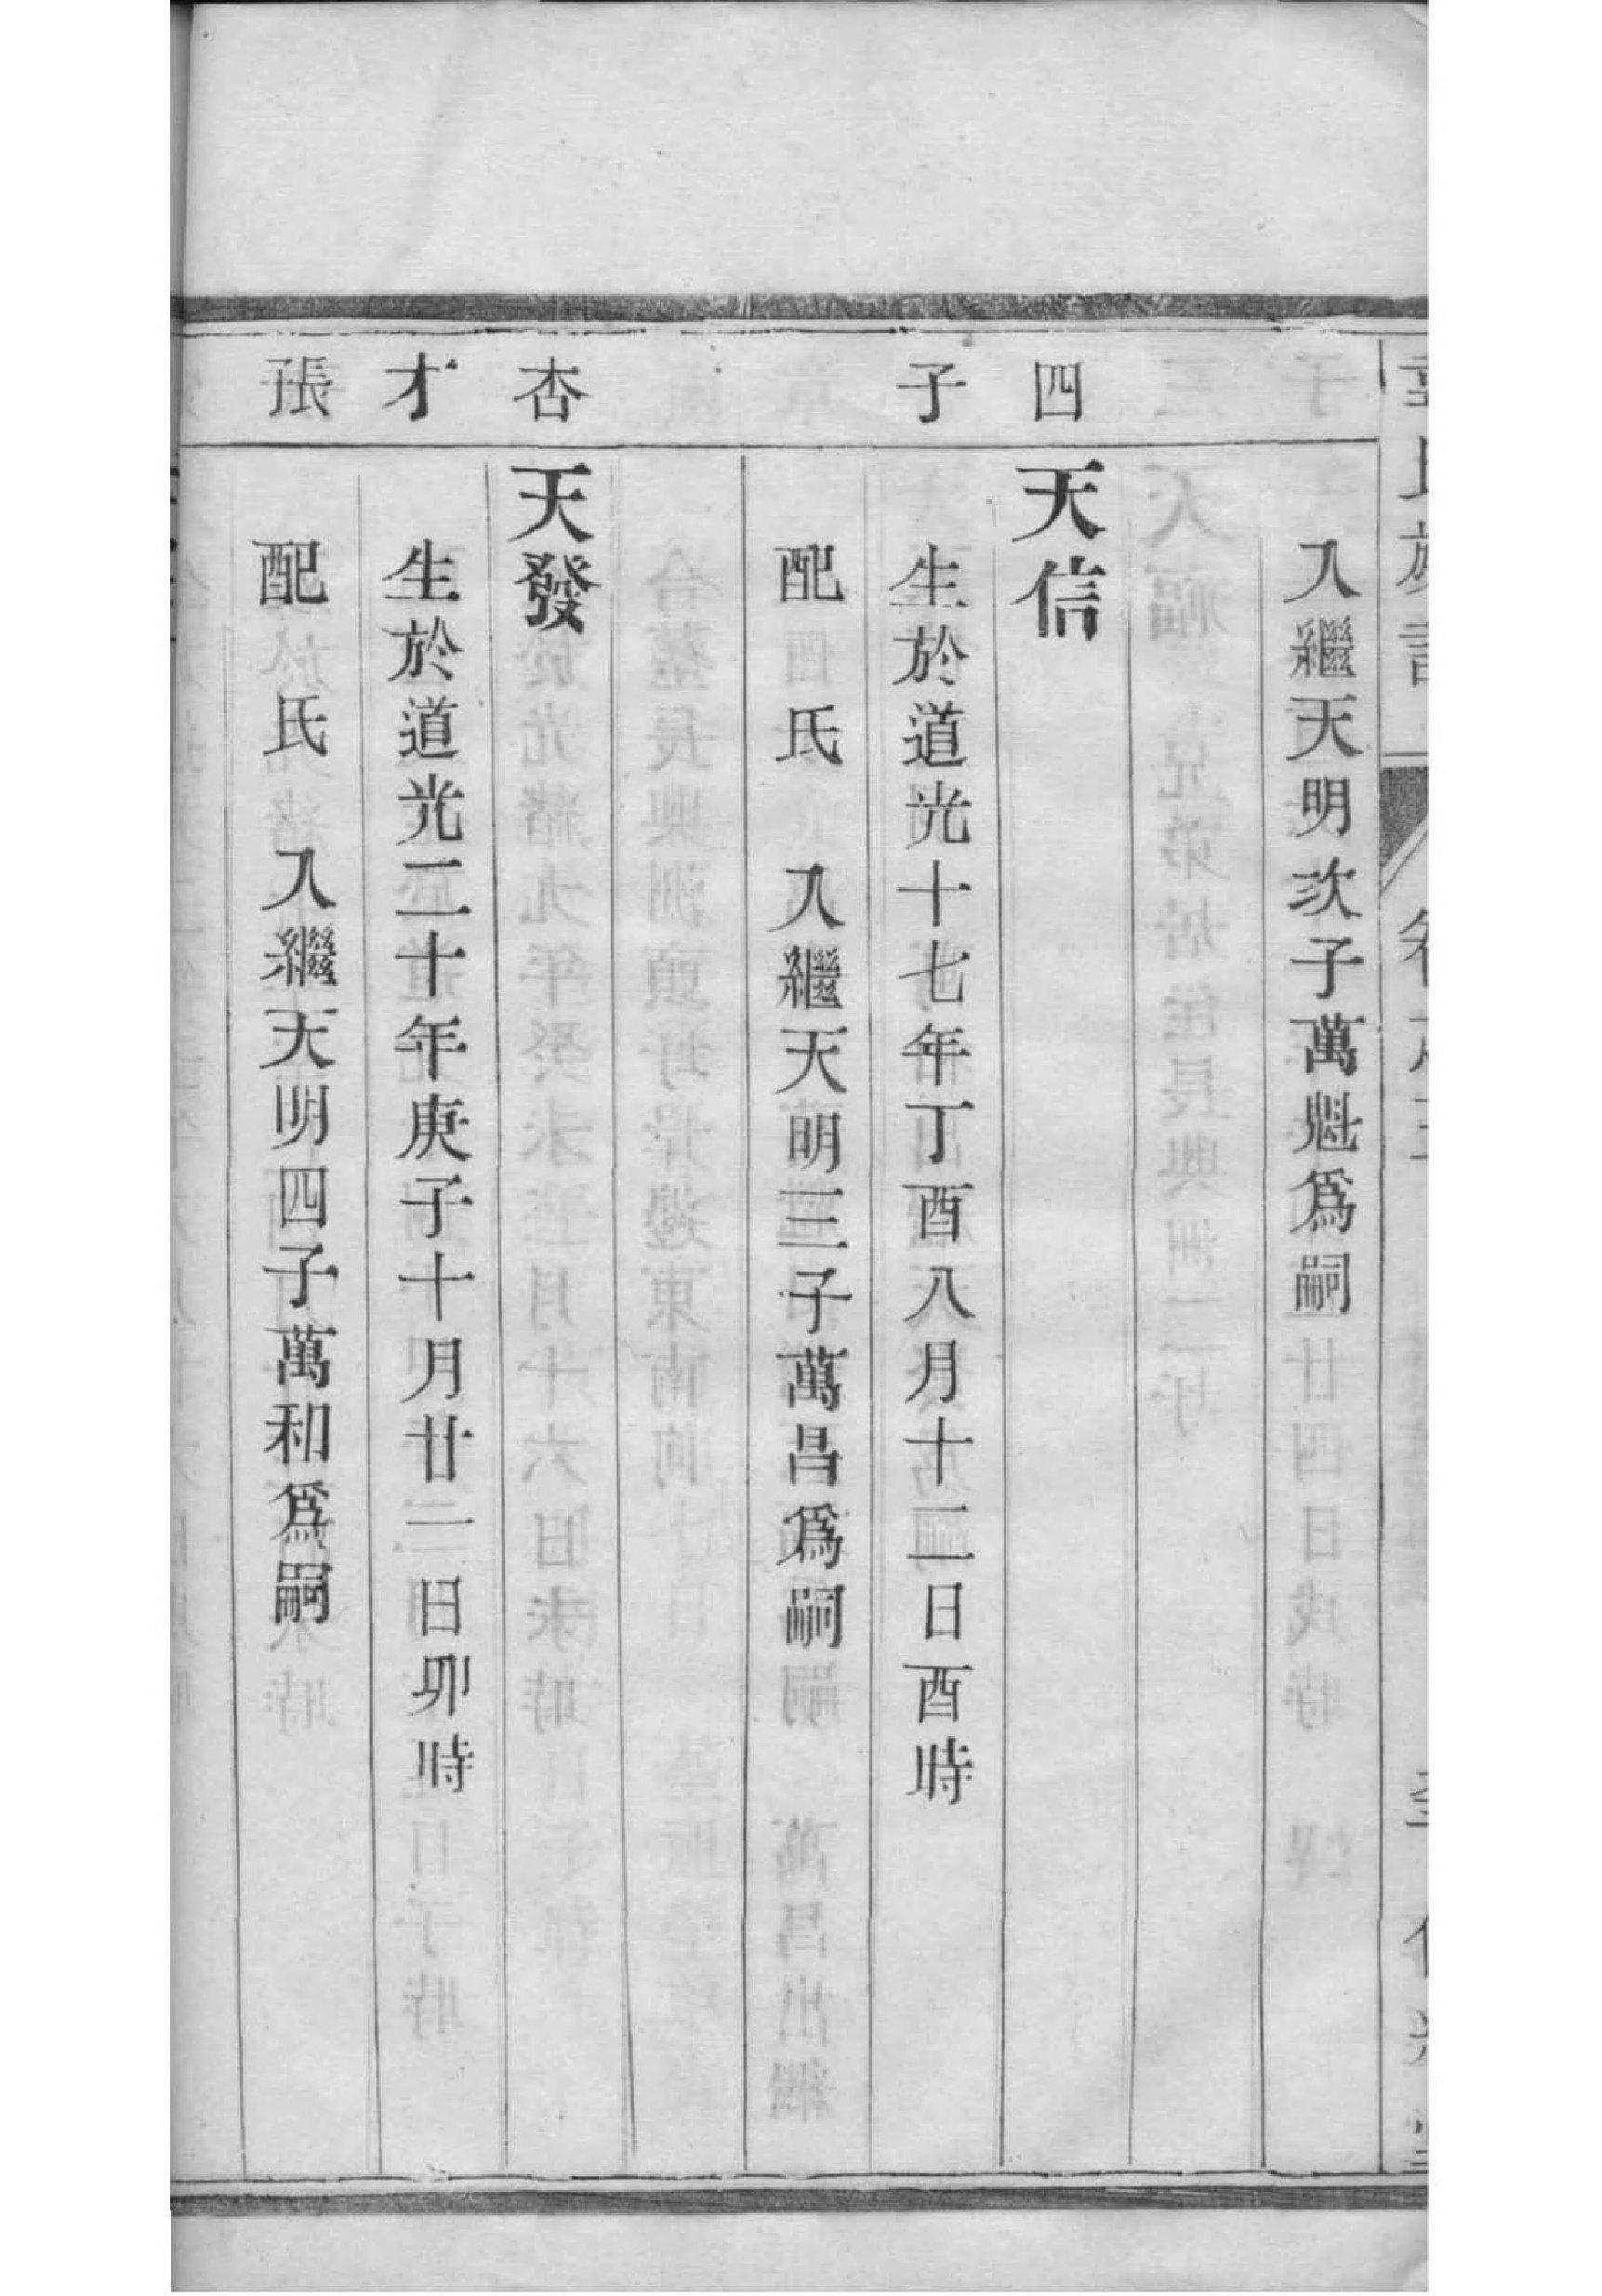 入繼天明次子萬魁爲嗣
四
天信
子
生於道光十七年丁酉八月十二日酉時
配 氏 入繼天明三子萬昌爲嗣
杏
天發
才
生於道光二十年庚子十月廿二日卯時
張
配 氏 入繼天明四子萬和爲嗣